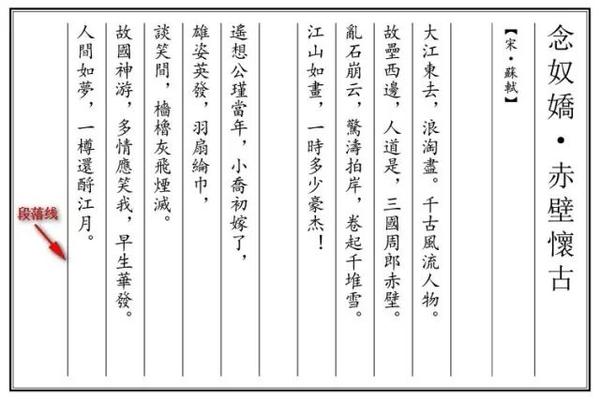 念奴嬌·赤壁懷古
【宋·蘇軾】
大江東去，浪淘盡。千古風流人物。
故壘西邊，人道是，三國周郎赤壁。
亂石崩云，驚濤拍岸，卷起千堆雪。
江山如畫，一時多少豪杰！
遙想公瑾當年，小喬初嫁了，
雄姿英發，羽扇綸巾，
談笑間，檣櫓灰飛煙滅。
故國神游，多情應笑我，早生華發。
人間如夢，一樽還酹江月。
段落线